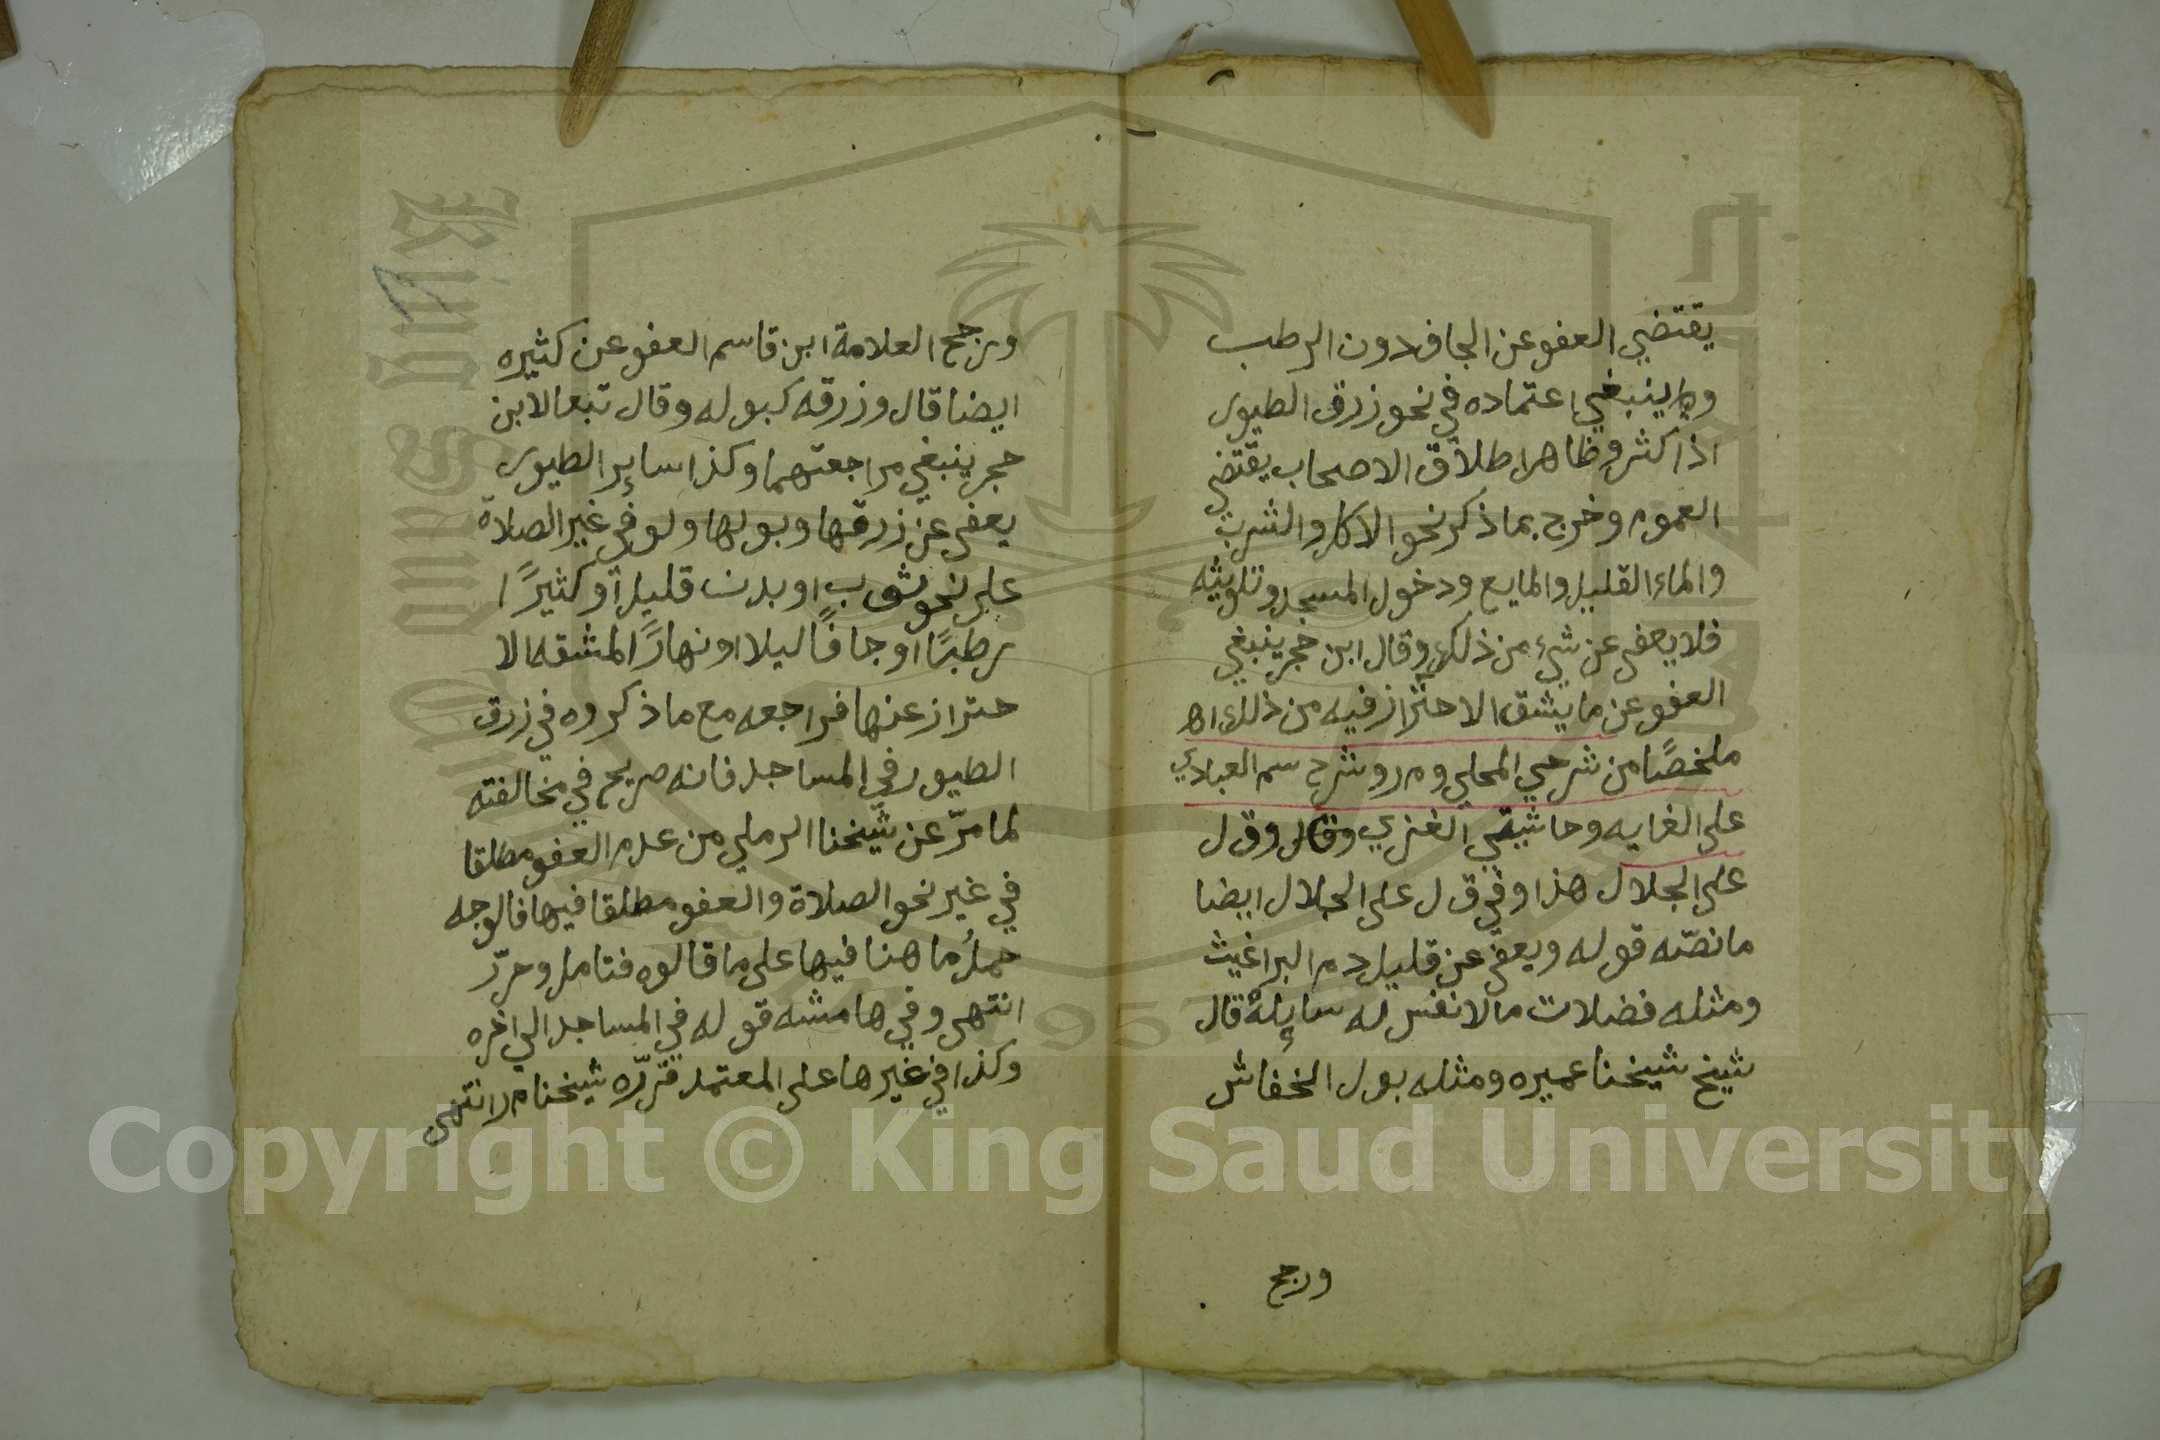 يقتضي العفو عن الجاف دون الرطب
وبه ينبغي اعتماده في نحو زرق الطيور
اذا كثر وظاهر اطلاق الاصحاب يقتضي
العموم وخرج بما ذكر نحو الاكل والشرب
والماء القليل والمايع ودخول المسجد وتلويثه
فلا يعفى عن شيء من ذلك وقال ابن حجر ينبغي
العفو عن ما يشق الاحتراز فيه من ذلك اه
ملخصًا من شرحي المحلي و م ر وشرح سم العبادي
على الغايه وحاشيتي الغزي وقال و ق ل
على الجلال هذا وفي ق ل على الجلال ايضا
ما نصّه قوله ويعفى عن قليل دم البراغيث
ومثله فضلات ما لا نفس له سايلة قال
شيخ شيخنا عميره ومثله بول الخفاش
ورجح
ورجح العلامة ابن قاسم العفو عن كثيره
ايضا قال وزرقه كبوله وقال تبعا لابن
حجر ينبغي مراجعتهما وكذا ساير الطيور
يعفى عن زرقها وبولها ولو في غير الصلاة
على نحو ثوب او بدن قليلا او كثيرًا
رطبًا او جافًا ليلا او نهارًا لمشقه الا
حتراز عنها فراجعه مع ما ذكروه في زرق
الطيور في المساجد فانه صريح في مخالفته
لما مرّ عن شيخنا الرملي من عدم العفو مطلقا
في غير نحو الصلاة والعفو مطلقا فيها فالوجه
حملُ ما هنا فيها على ما قالوه فتامل وحرّر
انتهى وفي هامشه قوله في المساجد الى اخره
وكذا في غيرها على المعتمد قرّره شيخنا م ر انتهى
Copyright © King Saud University
1957